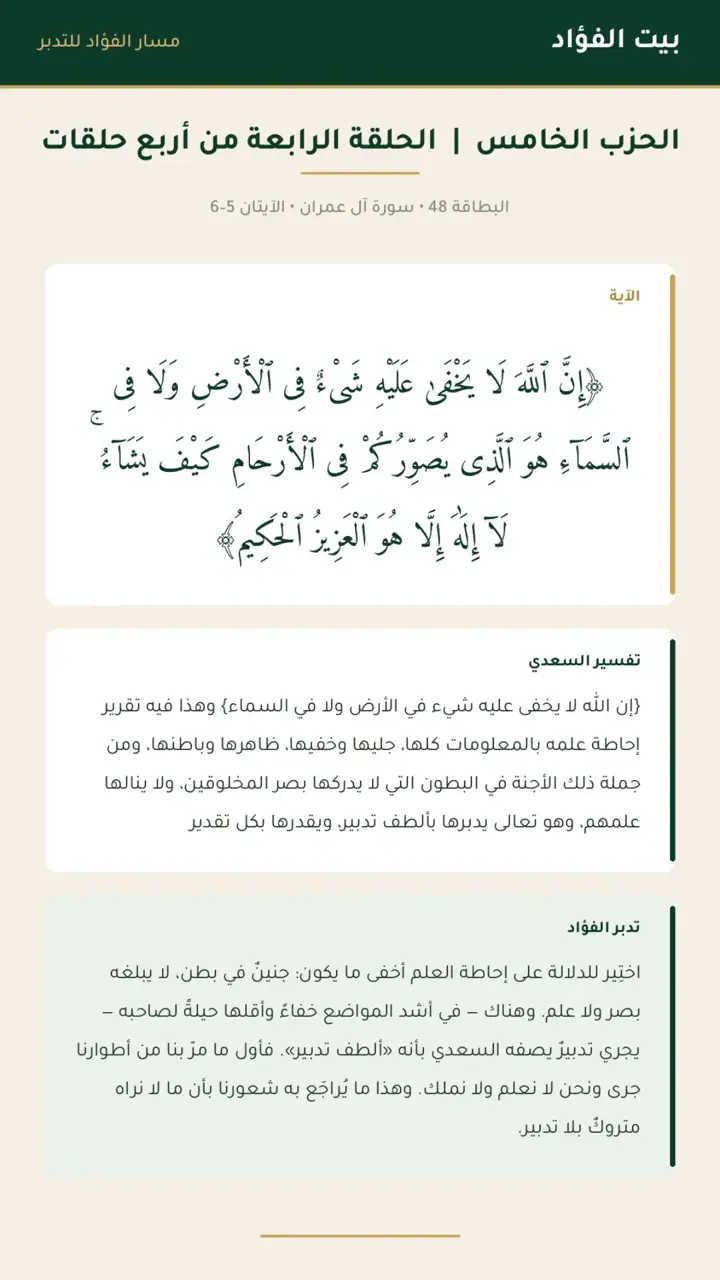 بيت الفؤاد
مسار الفؤاد للتدبر
الحزب الخامس | الحلقة الرابعة من أربع حلقات
البطاقة 48 • سورة آل عمران • الآيتان 5-6
الآية
﴿إِنَّ ٱللَّهَ لَا يَخْفَىٰ عَلَيْهِ شَىْءٌ فِى ٱلْأَرْضِ وَلَا فِى
ٱلسَّمَآءِ هُوَ ٱلَّذِى يُصَوِّرُكُمْ فِى ٱلْأَرْحَامِ كَيْفَ يَشَآءُ ۚ
لَآ إِلَٰهَ إِلَّا هُوَ ٱلْعَزِيزُ ٱلْحَكِيمُ﴾
تفسير السعدي
{إن الله لا يخفى عليه شيء في الأرض ولا في السماء} وهذا فيه تقرير
إحاطة علمه بالمعلومات كلها، جليها وخفيها، ظاهرها وباطنها، ومن
جملة ذلك الأجنة في البطون التي لا يدركها بصر المخلوقين، ولا ينالها
علمهم، وهو تعالى يدبرها بألطف تدبير، ويقدرها بكل تقدير
تدبر الفؤاد
اختِير للدلالة على إحاطة العلم أخفى ما يكون: جنينٌ في بطن، لا يبلغه
بصر ولا علم. وهناك – في أشد المواضع خفاءً وأقلها حيلةً لصاحبه –
يجري تدبيرٌ يصفه السعدي بأنه «ألطف تدبير». فأول ما مرّ بنا من أطوارنا
جرى ونحن لا نعلم ولا نملك. وهذا ما يُراجَع به شعورنا بأن ما لا نراه
متروكٌ بلا تدبير.